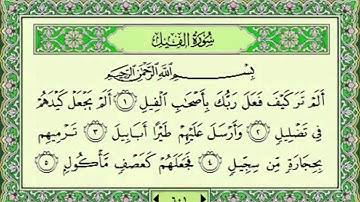 سُورَةُ الفِيلِ
بِسْمِ اللَّهِ الرَّحْمَٰنِ الرَّحِيمِ
أَلَمْ تَرَ كَيْفَ فَعَلَ رَبُّكَ بِأَصْحَٰبِ الْفِيلِ ١ أَلَمْ يَجْعَلْ كَيْدَهُمْ
فِي تَضْلِيلٍ ٢ وَأَرْسَلَ عَلَيْهِمْ طَيْرًا أَبَابِيلَ ٣ تَرْمِيهِم
بِحِجَارَةٍ مِّن سِجِّيلٍ ٤ فَجَعَلَهُمْ كَعَصْفٍ مَّأْكُولٍ ٥
٦٠١